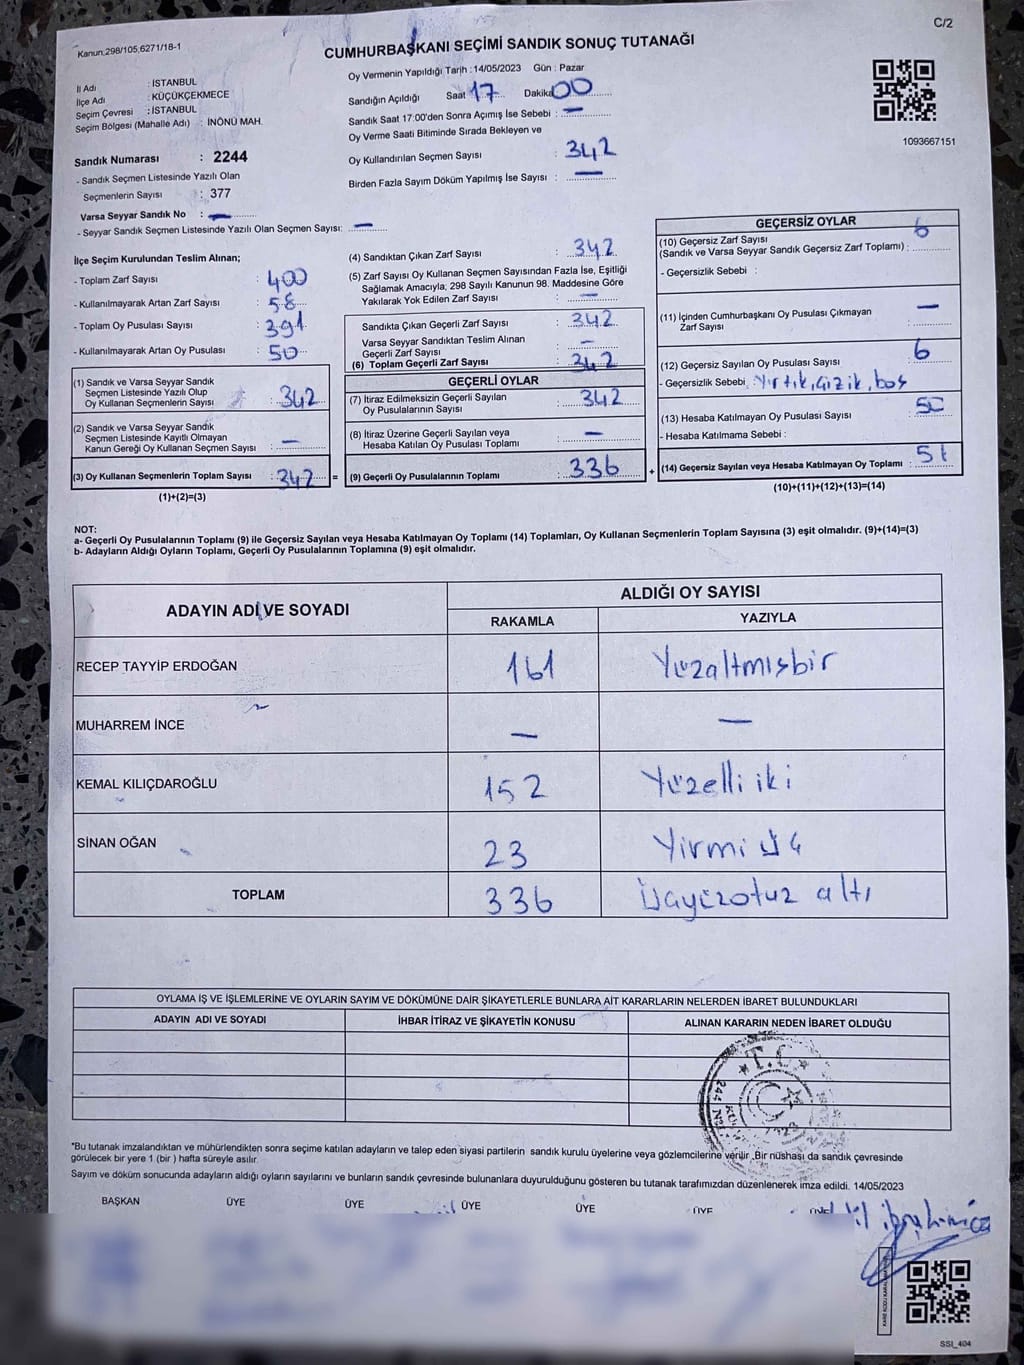 C/2
Kanun.298/105,6271/18-1
CUMHURBAŞKANI SEÇİMİ SANDIK SONUÇ TUTANAĞI
İl Adı : İSTANBUL
İlçe Adı : KÜÇÜKÇEKMECE
Seçim Çevresi : İSTANBUL
Seçim Bölgesi (Mahalle Adı) : İNÖNÜ MAH.
Sandık Numarası : 2244
- Sandık Seçmen Listesinde Yazılı Olan
Seçmenlerin Sayısı : 377
Varsa Seyyar Sandık No : —
- Seyyar Sandık Seçmen Listesinde Yazılı Olan Seçmen Sayısı: —
Oy Vermenin Yapıldığı Tarih :14/05/2023 Gün : Pazar
Sandığın Açıldığı Saat 17 Dakika 00
Sandık Saat 17:00'den Sonra Açımış İse Sebebi : —
Oy Verme Saati Bitiminde Sırada Bekleyen ve
Oy Kullandırılan Seçmen Sayısı : 342
Birden Fazla Sayım Döküm Yapılmış İse Sayısı : —
1093667151
İlçe Seçim Kurulundan Teslim Alınan;
- Toplam Zarf Sayısı : 400
- Kullanılmayarak Artan Zarf Sayısı : 58
- Toplam Oy Pusulası Sayısı : 391
- Kullanılmayarak Artan Oy Pusulası : 50
(1) Sandık ve Varsa Seyyar Sandık
Seçmen Listesinde Yazılı Olup
Oy Kullanan Seçmenlerin Sayısı : 342
(2) Sandık ve Varsa Seyyar Sandık
Seçmen Listesinde Kayıtlı Olmayan
Kanun Gereği Oy Kullanan Seçmen Sayısı : —
(3) Oy Kullanan Seçmenlerin Toplam Sayısı : 342 =
(1)+(2)=(3)
(4) Sandıktan Çıkan Zarf Sayısı : 342
(5) Zarf Sayısı Oy Kullanan Seçmen Sayısından Fazla İse, Eşitliği
Sağlamak Amacıyla; 298 Sayılı Kanunun 98. Maddesine Göre
Yakılarak Yok Edilen Zarf Sayısı : —
Sandıkta Çıkan Geçerli Zarf Sayısı : 342
Varsa Seyyar Sandıktan Teslim Alınan
Geçerli Zarf Sayısı : —
(6) Toplam Geçerli Zarf Sayısı : 342
GEÇERLİ OYLAR
(7) İtiraz Edilmeksizin Geçerli Sayılan
Oy Pusulalarının Sayısı : 342
(8) İtiraz Üzerine Geçerli Sayılan veya
Hesaba Katılan Oy Pusulası Toplamı : —
(9) Geçerli Oy Pusulalarının Toplamı : 336 +
GEÇERSİZ OYLAR
(10) Geçersiz Zarf Sayısı 6
(Sandık ve Varsa Seyyar Sandık Geçersiz Zarf Toplamı) :
- Geçersizlik Sebebi :
(11) İçinden Cumhurbaşkanı Oy Pusulası Çıkmayan —
Zarf Sayısı :
(12) Geçersiz Sayılan Oy Pusulası Sayısı : 6
- Geçersizlik Sebebi : Yırtık, çizik, boş
(13) Hesaba Katılmayan Oy Pusulası Sayısı : 50
- Hesaba Katılmama Sebebi :
(14) Geçersiz Sayılan veya Hesaba Katılmayan Oy Toplamı :
(10)+(11)+(12)+(13)=(14)
NOT:
a- Geçerli Oy Pusulalarının Toplamı (9) ile Geçersiz Sayılan veya Hesaba Katılmayan Oy Toplamı (14) Toplamları, Oy Kullanan Seçmenlerin Toplam Sayısına (3) eşit olmalıdır. (9)+(14)=(3)
b- Adayların Aldığı Oyların Toplamı, Geçerli Oy Pusulalarının Toplamına (9) eşit olmalıdır.
ADAYIN ADI VE SOYADI
ALDIĞI OY SAYISI
RAKAMLA YAZIYLA
RECEP TAYYİP ERDOĞAN 161 Yüzaltmışbir
MUHARREM İNCE — —
KEMAL KILIÇDAROĞLU 152 Yüzelli iki
SİNAN OĞAN 23 Yirmi üç
TOPLAM 336 Üçyüzotuz altı
OYLAMA İŞ VE İŞLEMLERİNE VE OYLARIN SAYIM VE DÖKÜMÜNE DAİR ŞİKAYETLERLE BUNLARA AİT KARARLARIN NELERDEN İBARET BULUNDUKLARI
ADAYIN ADI VE SOYADI İHBAR İTİRAZ VE ŞİKAYETİN KONUSU ALINAN KARARIN NEDEN İBARET OLDUĞU
T.C
*Bu tutanak imzalandıktan ve mühürlendikten sonra seçime katılan adayların ve talep eden siyasi partilerin sandık kurulu üyelerine veya gözlemcilerine verilir .Bir nüshası da sandık çevresinde
görülecek bir yere 1 (bir ) hafta süreyle asılır.
Sayım ve döküm sonucunda adayların aldığı oyların sayılarını ve bunların sandık çevresinde bulunanlara duyurulduğunu gösteren bu tutanak tarafımızdan düzenlenerek imza edildi. 14/05/2023
BAŞKAN ÜYE ÜYE ÜYE ÜYE ÜYE
SSI_404